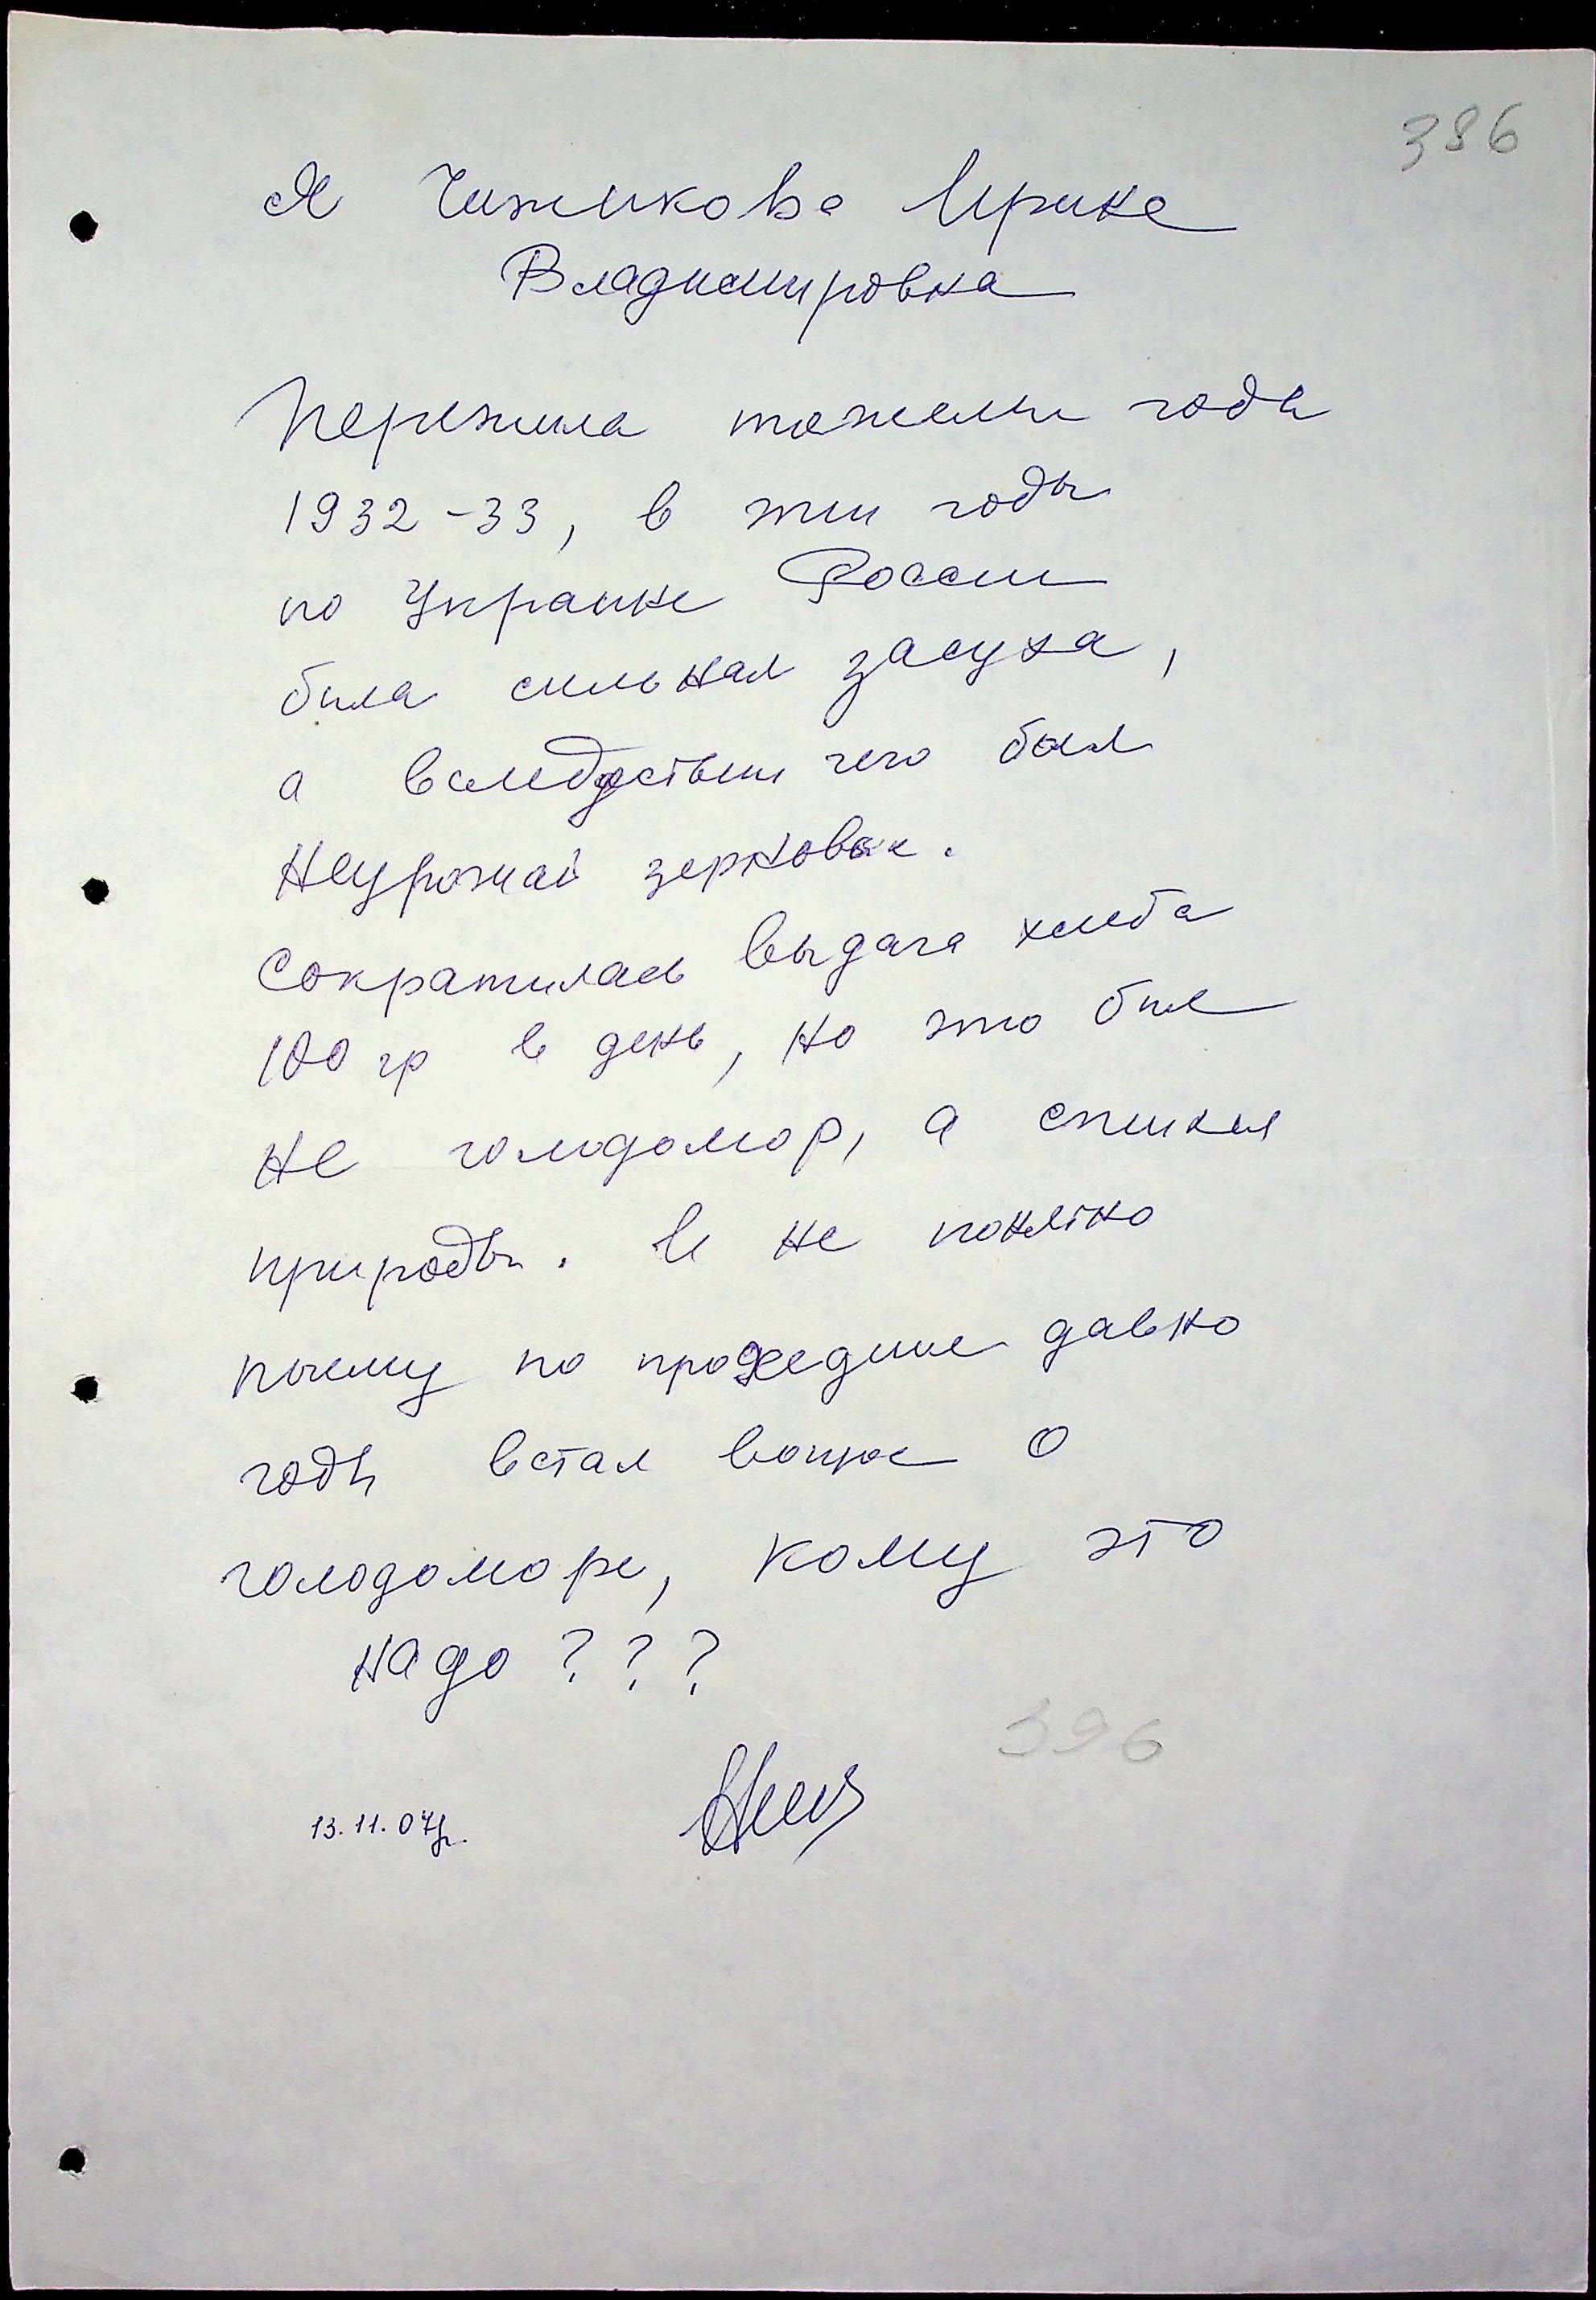 386
Я Чижикова Ирина
Владимировна
Пережила тяжелы года
1932-33, в эти годы
по Украине России
была сильная засуха,
а вследствии чего был
неурожай зерновых.
Сократилась выдача хлеба
100 гр в день, но это был
не голодомор, а стихия
природы. И не понятно
почему по прошедшие давно
годы встал вопрос о
голодоморе, кому это
надо ? ? ?
396
13.11.07г.